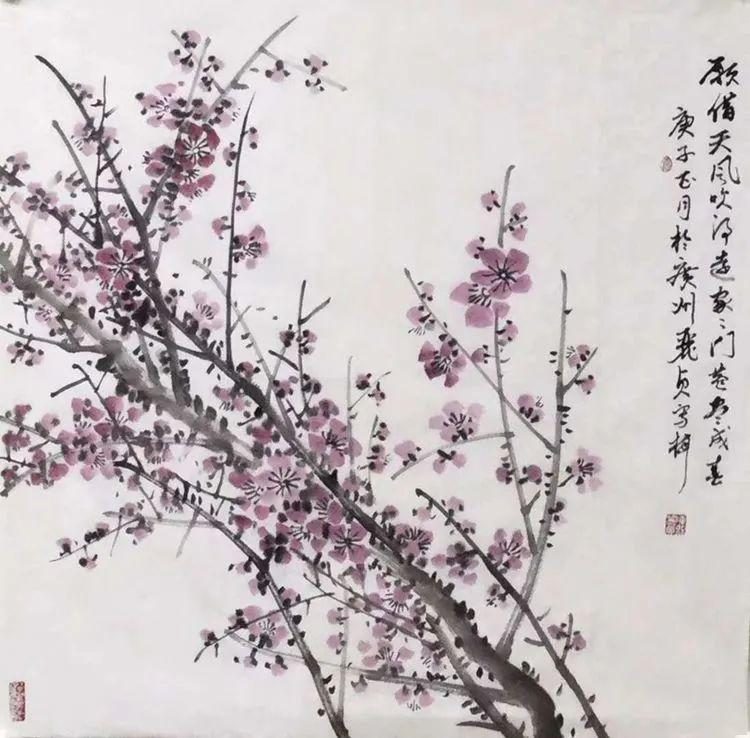 願借天风吹得遠家〻门巷尽成春
庚子正月於广州丽贞写梅